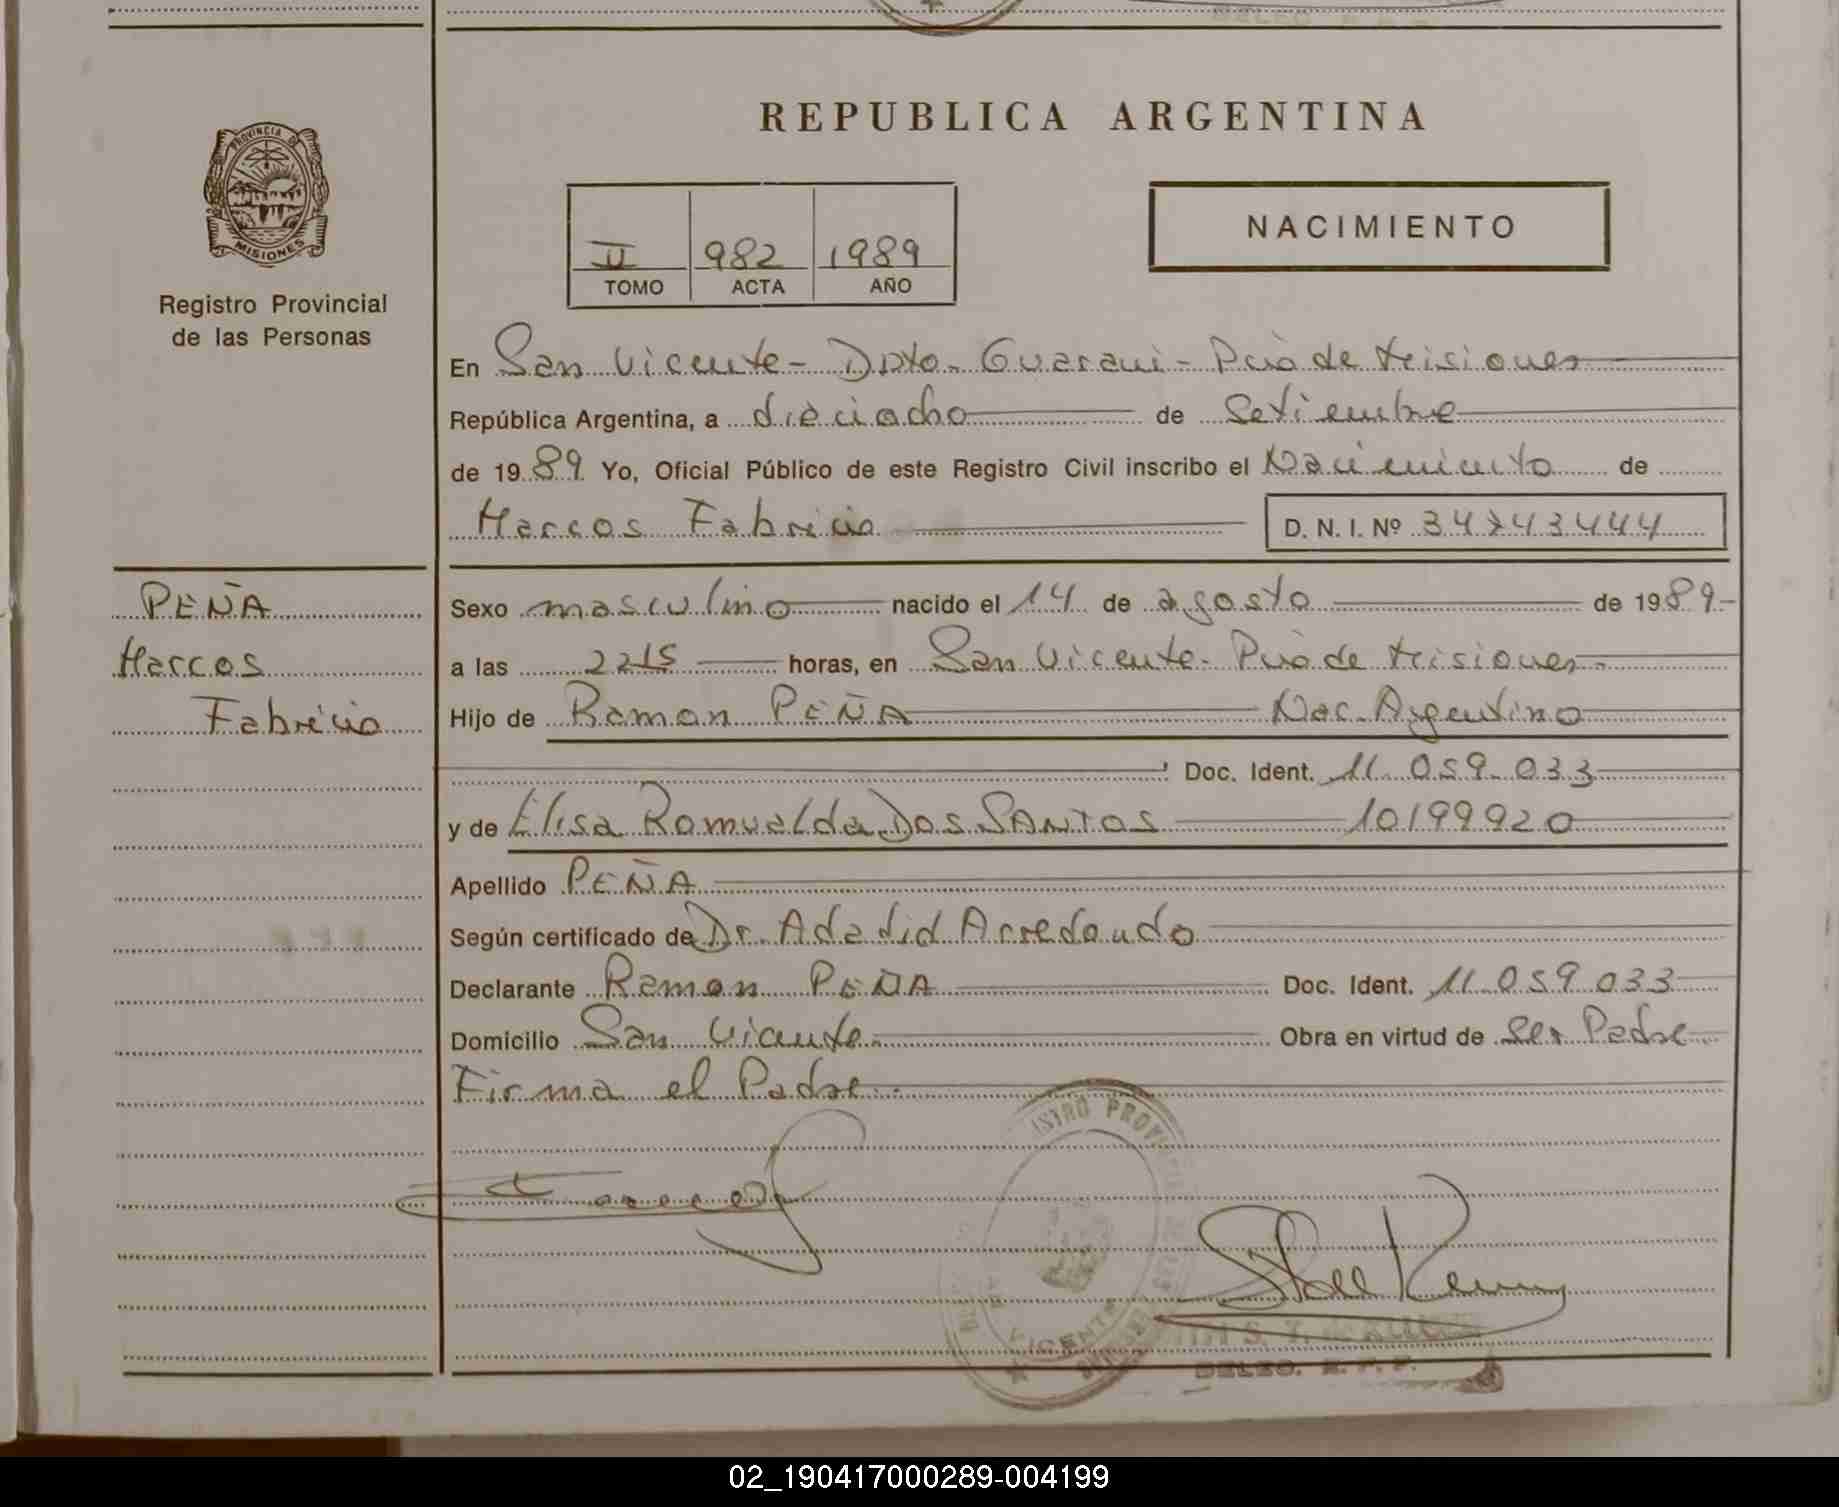 REPUBLICA ARGENTINA
PROVINCIA DE
MISIONES
Registro Provincial
de las Personas
II 982 1989
TOMO ACTA AÑO
NACIMIENTO
En San Vicente - Dpto. Guarani - Pcia de Misiones
República Argentina, a dieciocho de Setiembre
de 1989 Yo, Oficial Público de este Registro Civil inscribo el Nacimiento de
Marcos Fabricio D. N. I. Nº 34743444
PEÑA
Marcos
Fabricio
Sexo masculino nacido el 14 de agosto de 1989-
a las 2215 horas, en San Vicente - Pcia de Misiones.
Hijo de Ramon PEÑA Nac. Argentino
Doc. Ident. 11.059.033
y de Elisa Romualda Dos SANTOS 10199920
Apellido PEÑA
Según certificado de Dr. Adalid Arredondo
Declarante Ramon PEÑA Doc. Ident. 11.059.033
Domicilio San Vicente. Obra en virtud de Ser Padre
Firma el Padre..
VICENTE
02_190417000289-004199